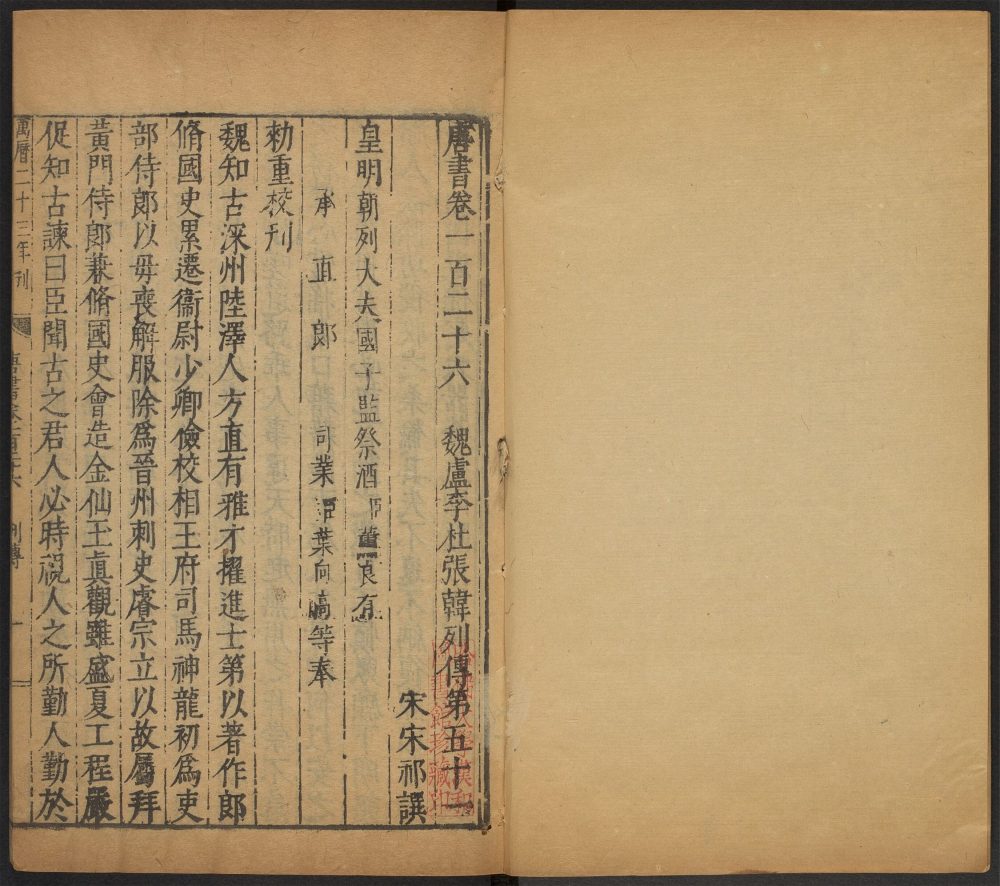 唐書卷一百二十六 魏盧李杜張韓列傳第五十一
宋宋祁譔
皇明朝列大夫國子監祭酒臣蕭良有
承直郎司業臣葉向高等奉
勑重校刊
魏知古深州陸澤人方直有雅才擢進士第以著作郎
脩國史累遷衞尉少卿儉校相王府司馬神龍初爲吏
部侍郎以毋喪解服除爲晉州刺史睿宗立以故屬拜
黃門侍郎兼脩國史會造金仙王眞觀雖盛夏工程嚴
促知古諫曰臣聞古之君人必時視人之所勤人勤於
萬曆二十三年刊
唐書卷一百二十六 列傳 一
哈佛大學漢和
圖書館珍藏印